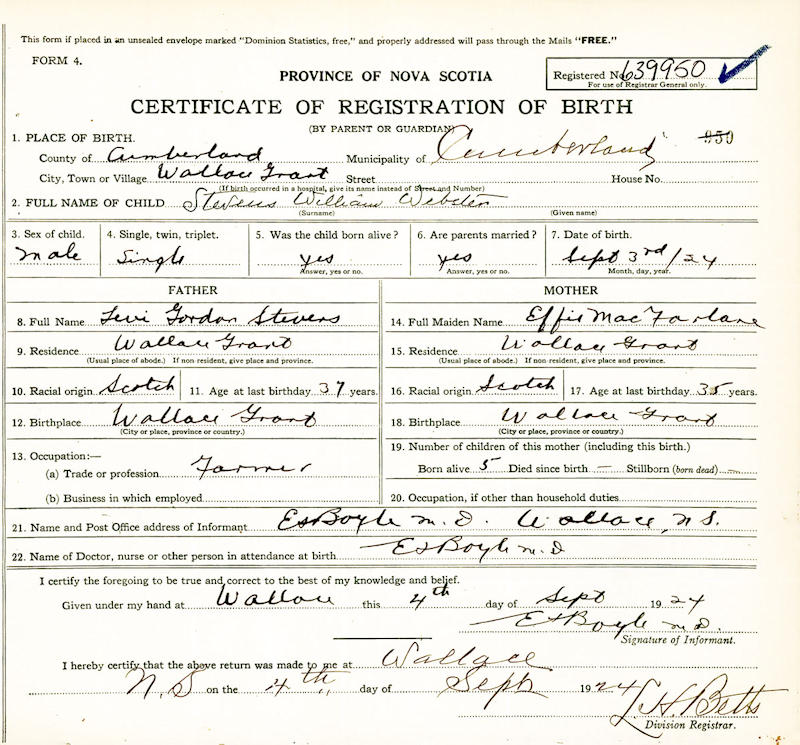 This form if placed in an unsealed envelope marked "Dominion Statistics, free," and properly addressed will pass through the Mails "FREE."
FORM 4.
PROVINCE OF NOVA SCOTIA
Registered No. 639950
For use of Registrar General only.
CERTIFICATE OF REGISTRATION OF BIRTH
(BY PARENT OR GUARDIAN)
959
1. PLACE OF BIRTH.
County of Cumberland Municipality of Cumberland
City, Town or Village Wallace Grant Street House No.
(If birth occurred in a hospital, give its name instead of Street and Number)
2. FULL NAME OF CHILD Stevens William Webster
(Surname) (Given name)
3. Sex of child. 4. Single, twin, triplet. 5. Was the child born alive? 6. Are parents married? 7. Date of birth.
Male Single yes yes Sept 3rd/24
Answer, yes or no. Answer, yes or no. Month, day, year.
FATHER MOTHER
8. Full Name Levi Gordon Stevens 14. Full Maiden Name Effie MacFarlane
9. Residence Wallace Grant 15. Residence Wallace Grant
(Usual place of abode.) If non resident, give place and province. (Usual place of abode.) If non resident, give place and province.
10. Racial origin Scotch 11. Age at last birthday 37 years. 16. Racial origin Scotch 17. Age at last birthday 35 years.
12. Birthplace Wallace Grant 18. Birthplace Wallace Grant
(City or place, province or country.) (City or place, province or country.)
13. Occupation:— 19. Number of children of this mother (including this birth.)
(a) Trade or profession Farmer Born alive 5 Died since birth — Stillborn (born dead) —
(b) Business in which employed 20. Occupation, if other than household duties
21. Name and Post Office address of Informant E S Boyle M.D. Wallace, N.S.
22. Name of Doctor, nurse or other person in attendance at birth E S Boyle M.D
I certify the foregoing to be true and correct to the best of my knowledge and belief.
Given under my hand at Wallace this 4th day of Sept 1924
E S Boyle M.D.
Signature of Informant.
I hereby certify that the above return was made to me at Wallace
N.S on the 4th day of Sept 1924
L. H. Betts
Division Registrar.